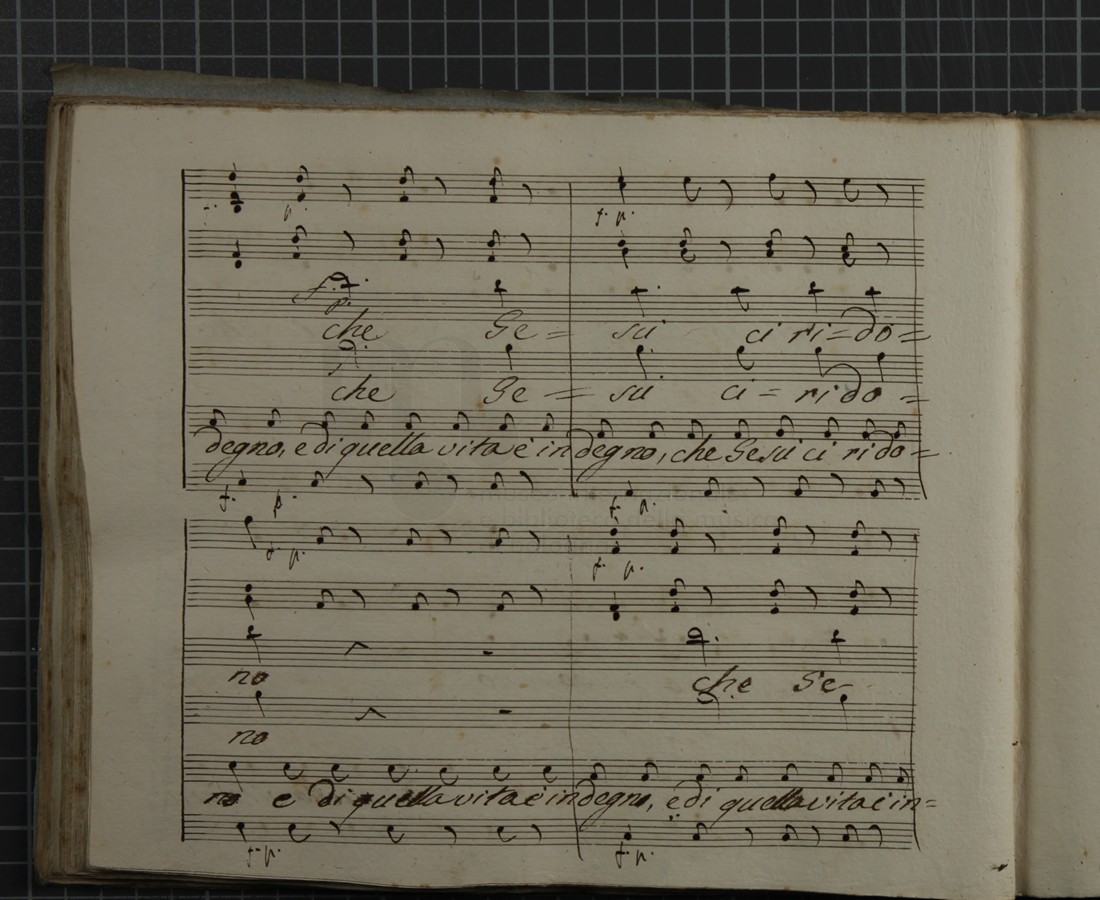 f. p.
f. p.
f. p.
che Ge= su ci ri=do=
che Ge= su ci= rido=
degno, e di quella vita è indegno, che Gesù ci rido=
f. p. f. p.
f. p. f. p.
no che Ge
no
no e di quella vita è indegno, e di quella vita è in=
f. p. f. p.